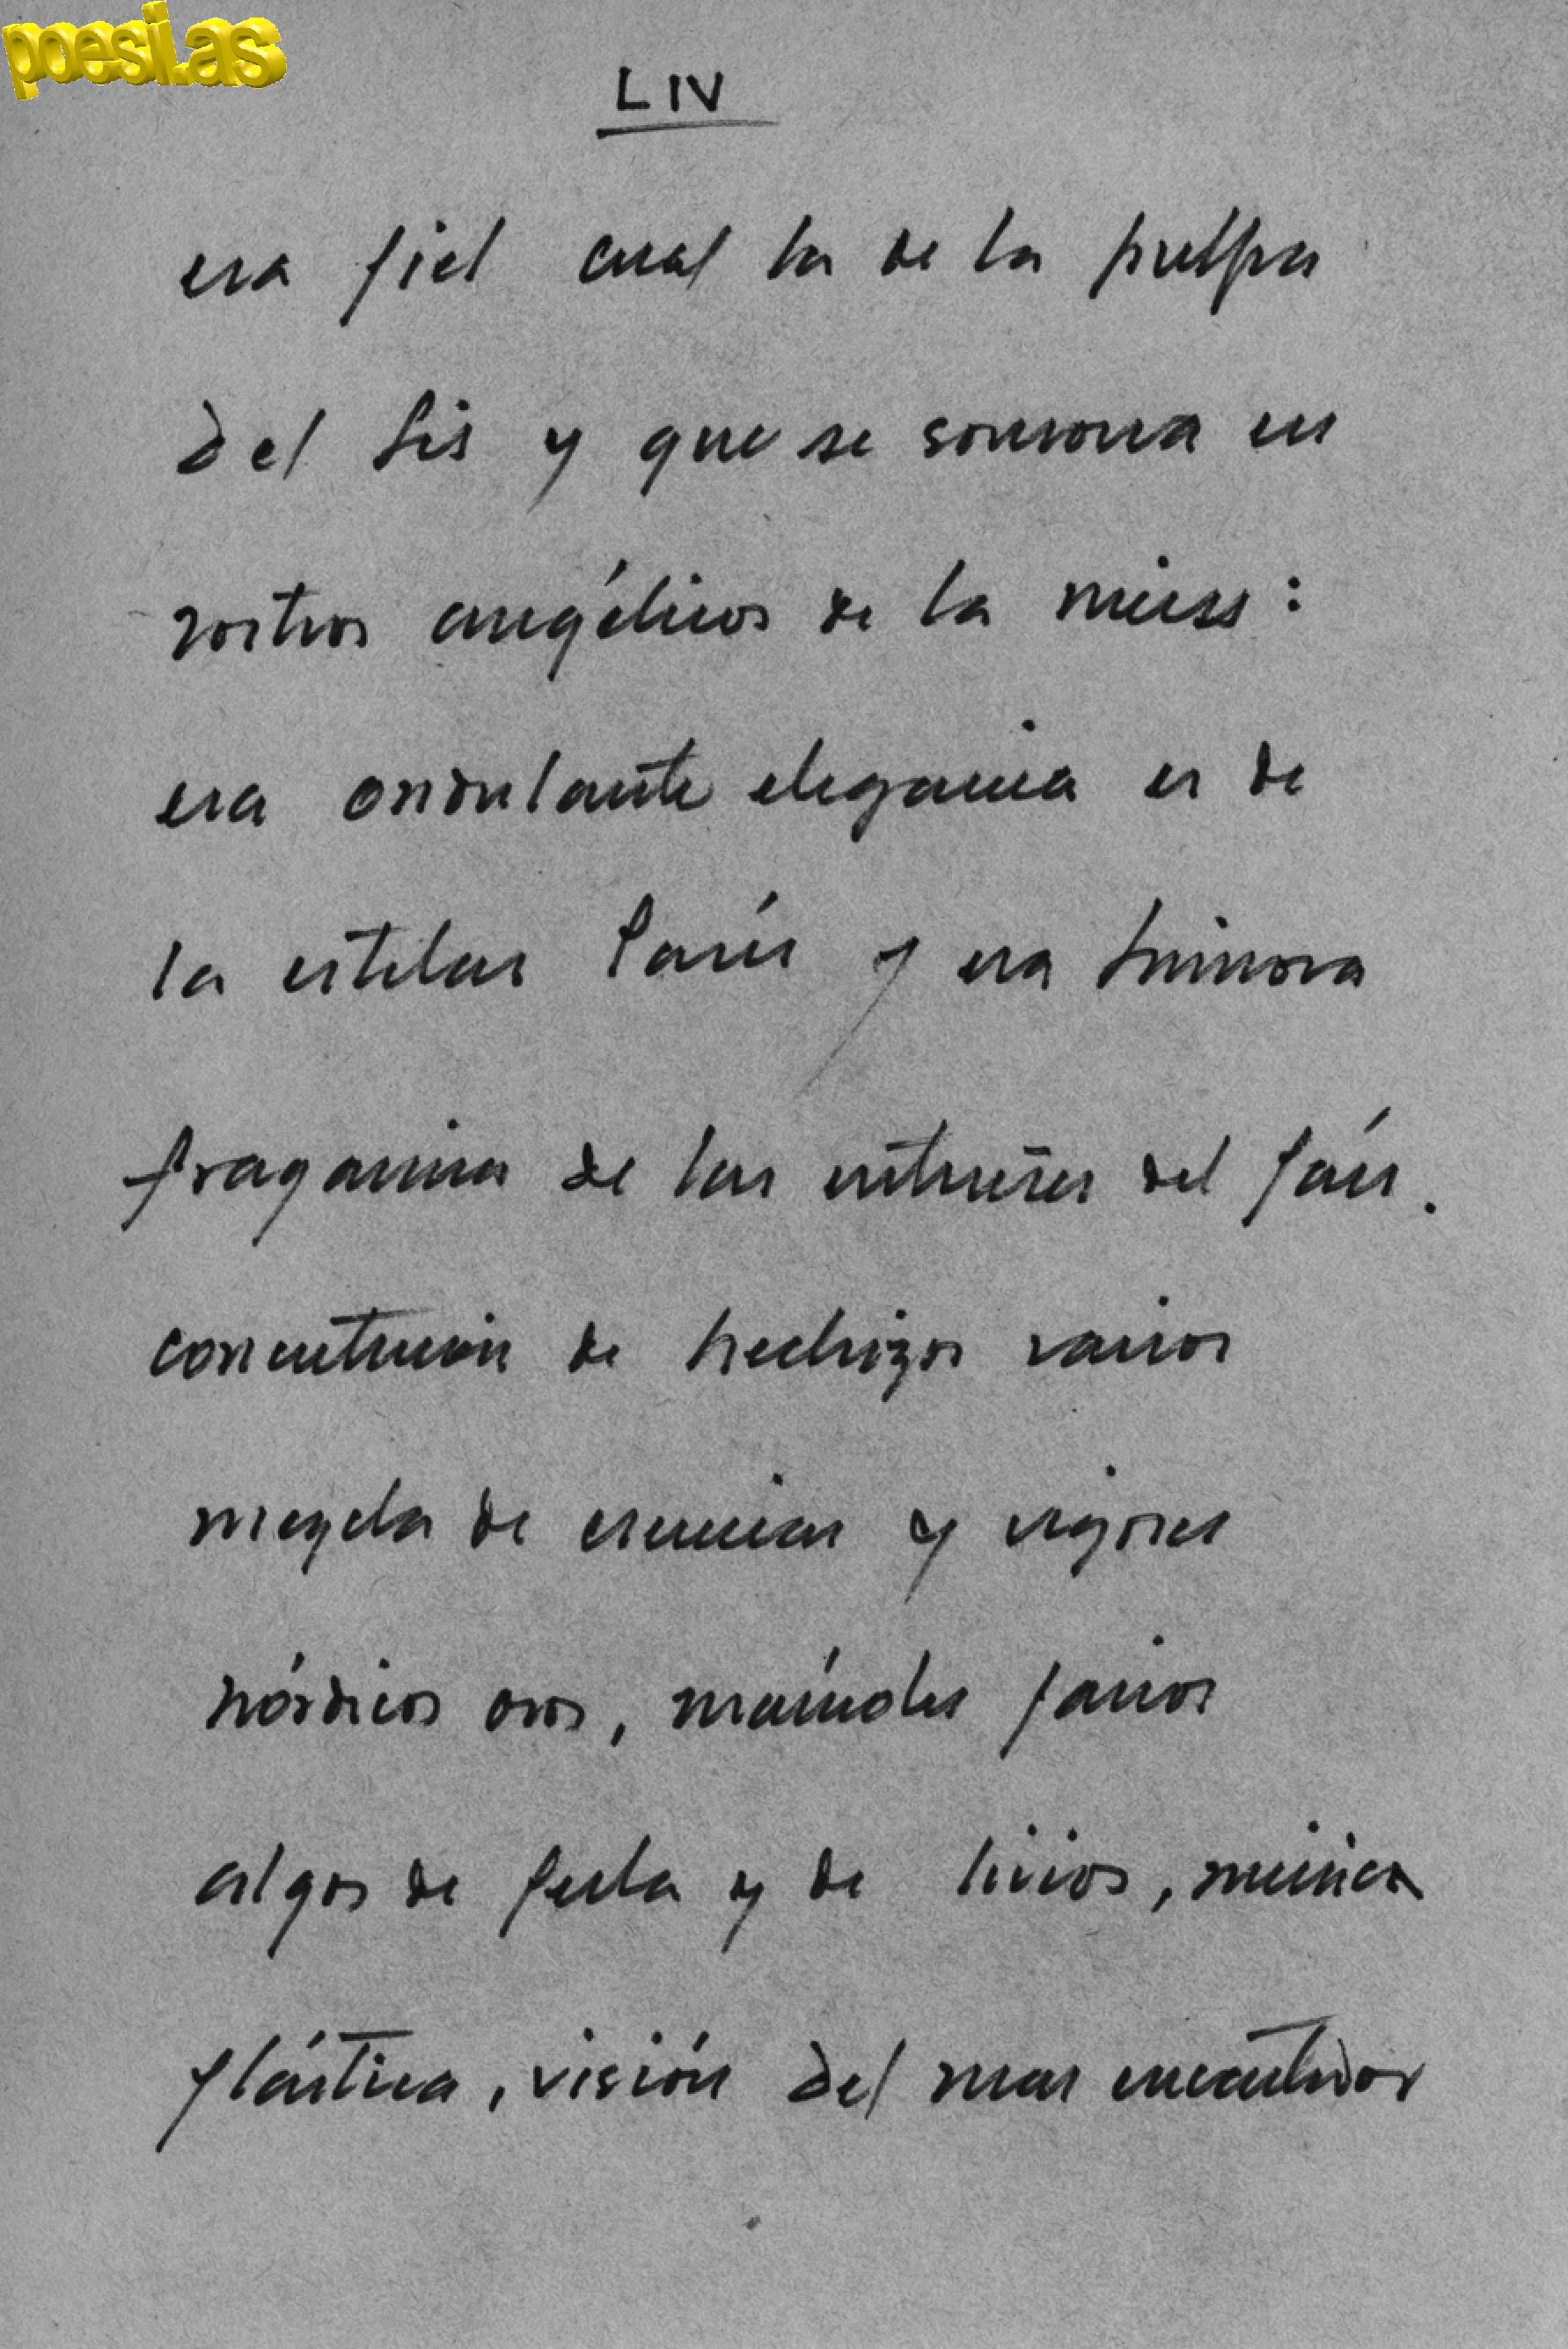 poesi.as
LIV
esa piel cual la de la pulpa
del lis y que se sonrosa en
rostros angélicos de la miss:
esa ondulante elegancia es de
la estelar París y esa
fragancia de las entrañas del país.
concentración de hechizos varios
mezcla de esencias y vigores
nórdicos oros, mármoles parios
algos de perla y de lirios, música
plástica, visión del mar encantador